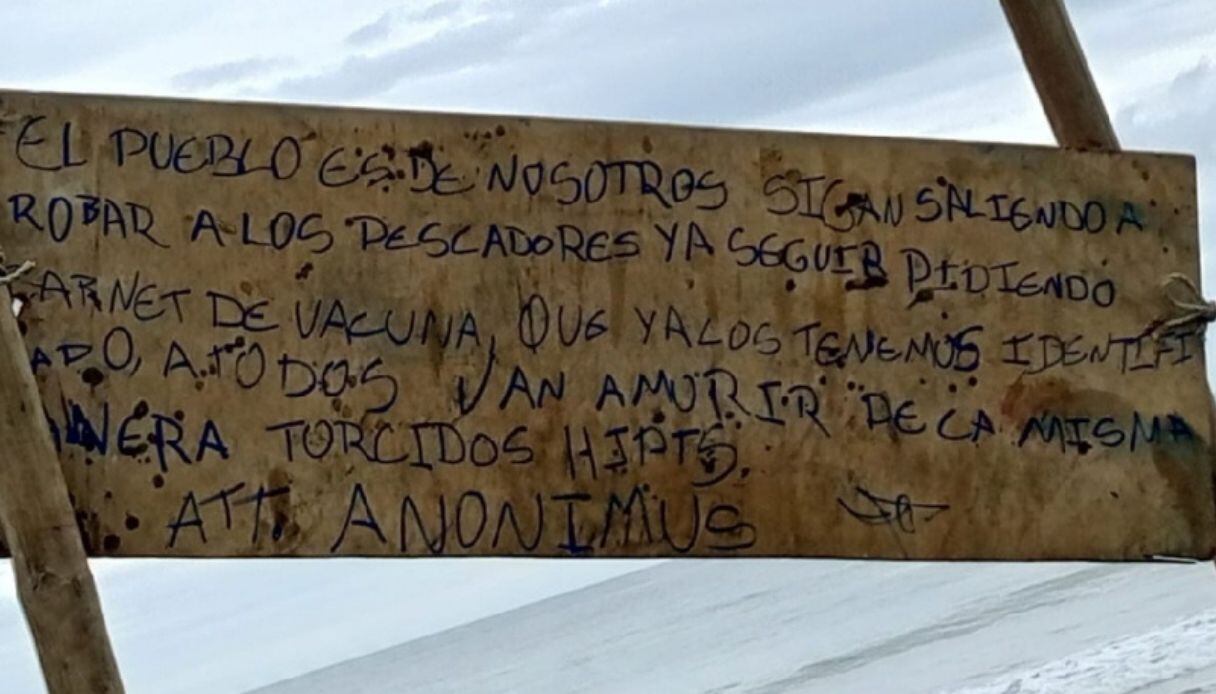 EL PUEBLO ES DE NOSOTROS SIGAN SALIENDO A
ROBAR A LOS PESCADORES YA SEGUIR PIDIENDO
ARNET DE VACUNA, QUE YA LOS TENEMOS IDENTIFI
ADO, A TODOS VAN AMORIR DE LA MISMA
NERA TORCIDOS HJPTS.
ATT. ANONIMUS